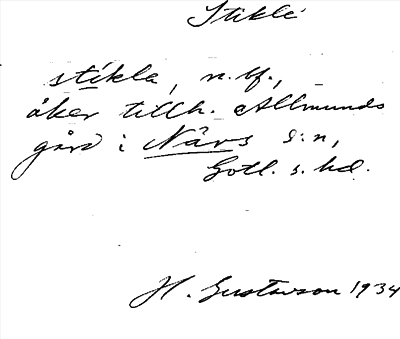 Stikle
stikla, n. bf.,
åker tillh. Allmunds
gård i När s:n,
Gotl. s. hd.
H. Gustavson 1934